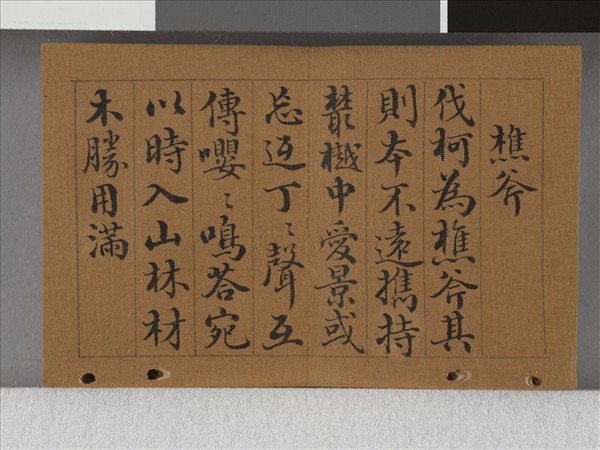 樵斧
伐柯為樵斧其
則本不遠攜持
叢樾中愛景或
忘返丁〻聲互
傳嚶〻鳴荅宛
以時入山林材
木勝用滿